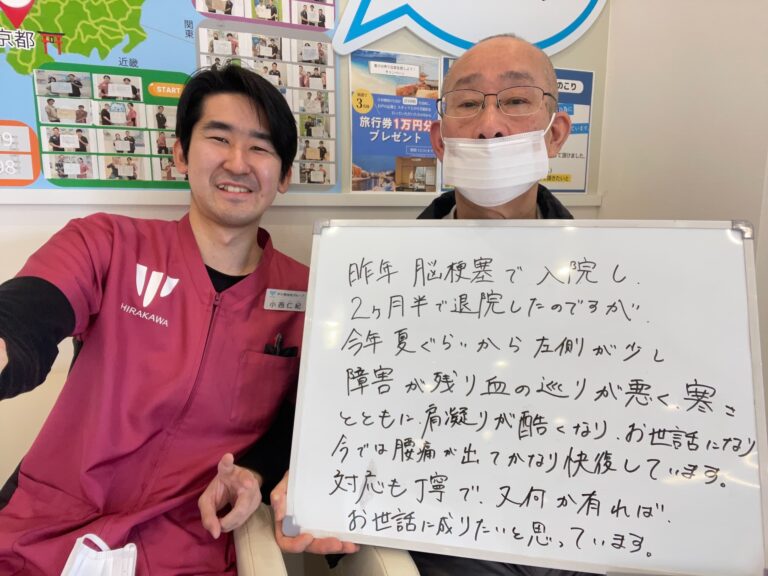 京都
関東
近畿
START
旅行券1万円分
プレゼント
のこり
HIRAKAWA
小西仁紀
昨年 脳梗塞で入院し、
2ヶ月半で退院したのですが、
今年夏ぐらいから左側が少し
障害が残り血の巡りが悪く、寒さ
とともに、肩凝りが酷くなり、お世話になり
今では腰痛が出てかなり快復しています。
対応も丁寧で、又何か有れば、
お世話に成りたいと思っています。